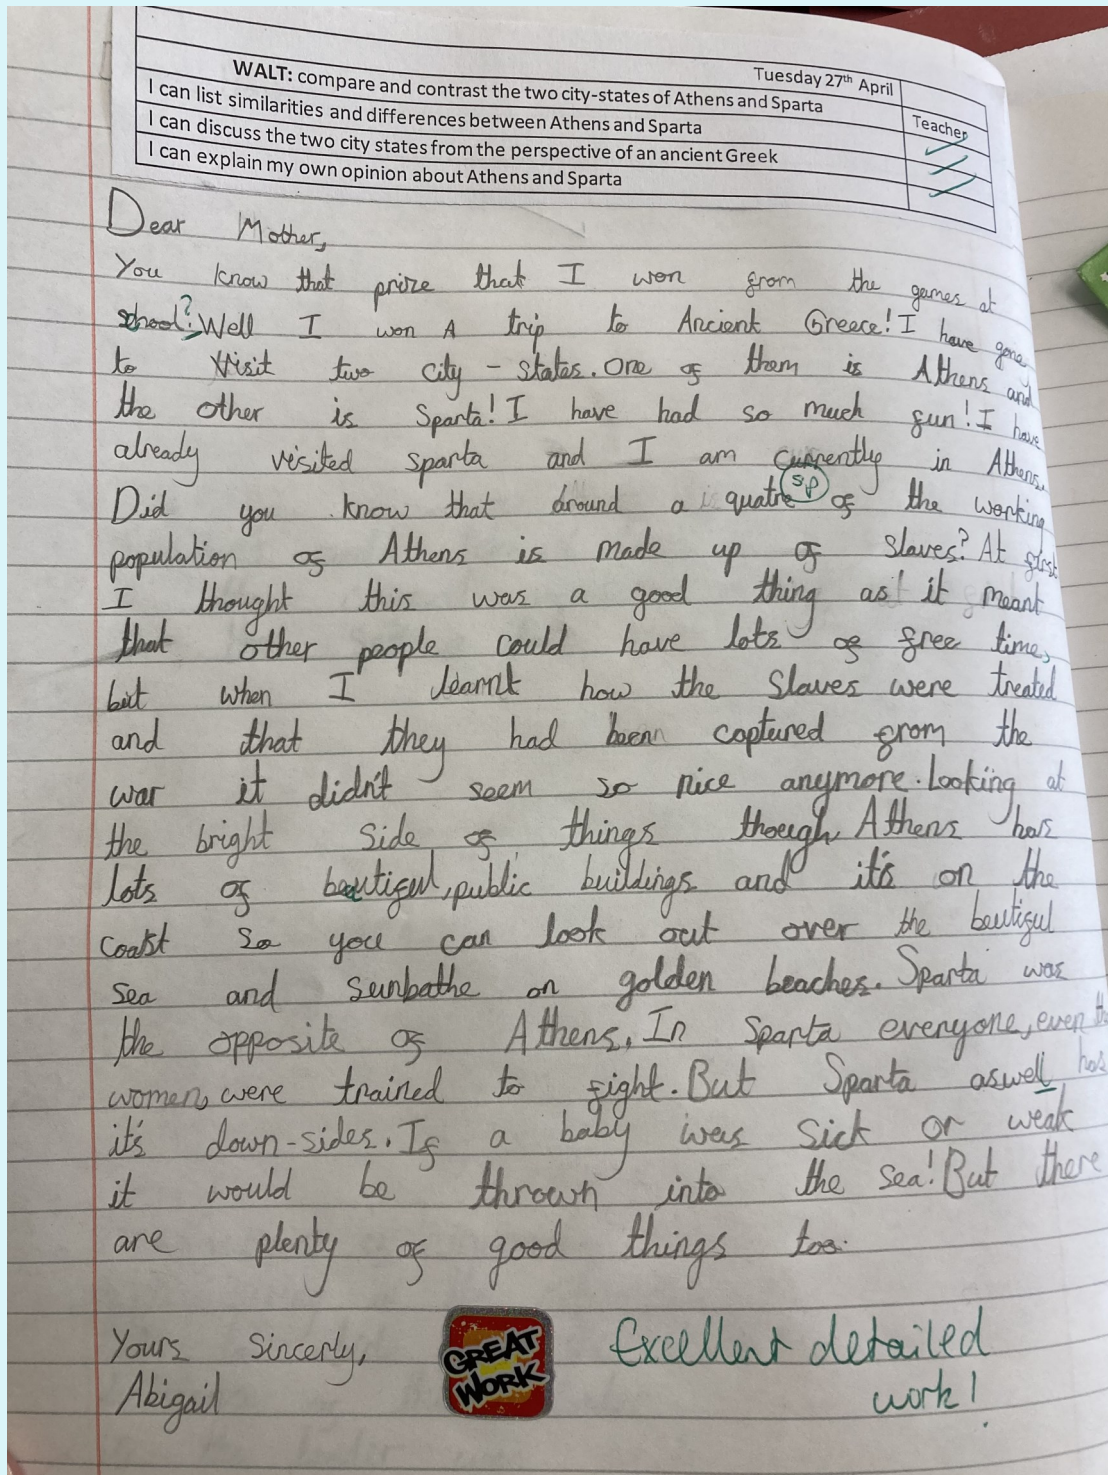 Tuesday 27th April
WALT: compare and contrast the two city-states of Athens and Sparta
Teacher
I can list similarities and differences between Athens and Sparta
I can discuss the two city states from the perspective of an ancient Greek
I can explain my own opinion about Athens and Sparta
Dear Mother,
You know that prize that I won from the games at
school? Well I won A trip to Ancient Greece! I have gone
to Visit two city - states. One of them is Athens and
the other is Sparta! I have had so much fun! I have
already visited sparta and I am currently in Athens.
Did you know that around a quatre sp of the working
population of Athens is made up of slaves? At first
I thought this was a good thing as it meant
that other people could have lots of free time,
but when I learnt how the slaves were treated
and that they had been captured from the
war it didn't seem so nice anymore. Looking at
the bright side of things though, Athens has
lots of beautiful, public buildings and it's on the
coast so you can look out over the beutiful
sea and sunbathe on golden beaches. Sparta was
the opposite of Athens. In Sparta everyone, even the
women, were trained to fight. But Sparta aswell has
it's down-sides. If a baby was sick or weak
it would be thrown into the sea! But there
are plenty of good things too.
Yours Sincerly,
Abigail
GREAT WORK
Excellent detailed
work!